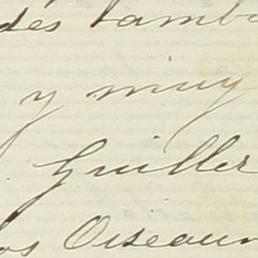 des tamb
y muy
Guiller
os Oiseaux